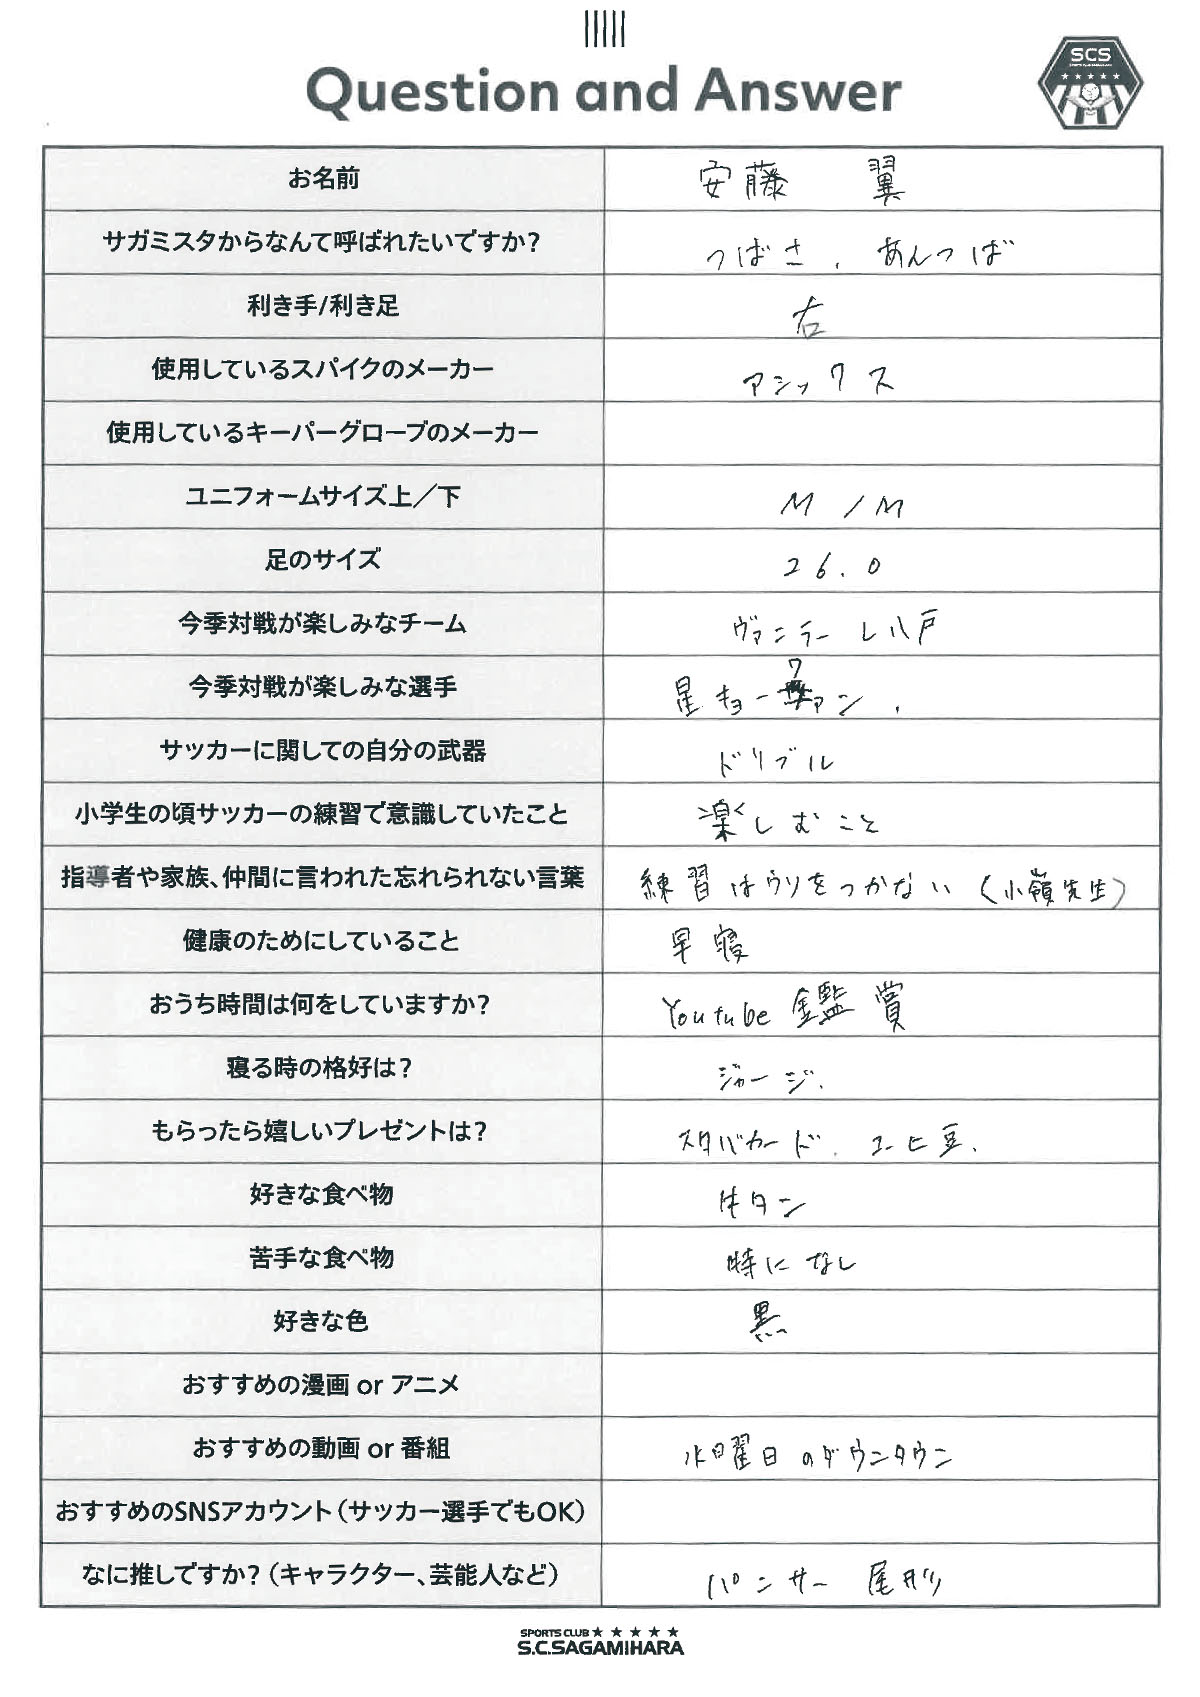 Question and Answer
SCS
お名前 安藤 翼
サガミスタからなんて呼ばれたいですか? つばさ、あんつば
利き手/利き足 右
使用しているスパイクのメーカー アシックス
使用しているキーパーグローブのメーカー
ユニフォームサイズ上／下 M / M
足のサイズ 26.0
今季対戦が楽しみなチーム ヴァンラーレ八戸
今季対戦が楽しみな選手 星キョーワァン、
サッカーに関しての自分の武器 ドリブル
小学生の頃サッカーの練習で意識していたこと 楽しむこと
指導者や家族、仲間に言われた忘れられない言葉 練習はウソをつかない（小嶺先生）
健康のためにしていること 早寝
おうち時間は何をしていますか? Youtube 鑑賞
寝る時の格好は? ジャージ.
もらったら嬉しいプレゼントは? スタバカード、コーヒー豆.
好きな食べ物 牛タン
苦手な食べ物 特になし
好きな色 黒
おすすめの漫画 or アニメ
おすすめの動画 or 番組 水曜日のダウンタウン
おすすめのSNSアカウント（サッカー選手でもOK）
なに推しですか?（キャラクター、芸能人など） パンサー 尾形
SPORTS CLUB ★ ★ ★ ★ ★
S.C.SAGAMIHARA